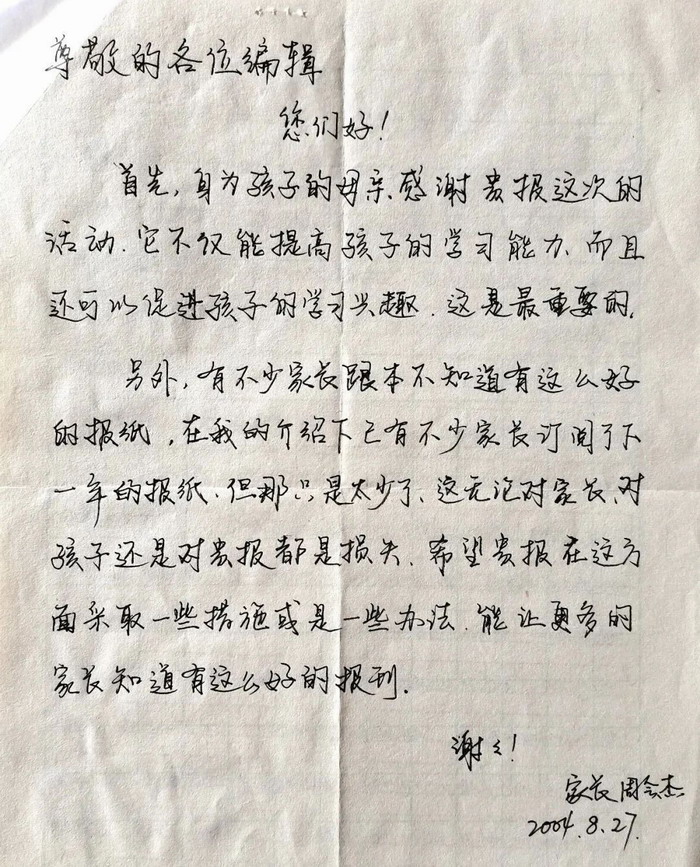 尊敬的各位编辑
您们好！
首先，身为孩子的母亲、感谢贵报这次的
活动．它不仅能提高孩子的学习能力、而且
还可以促进孩子的学习兴趣．这是最重要的．
另外，有不少家长跟本不知道有这么好
的报纸，在我的介绍下已有不少家长订阅了下
一年的报纸．但那只是太少了、这无论对家长、对
孩子还是对贵报都是损失．希望贵报在这方
面采取一些措施或是一些办法．能让更多的
家长知道有这么好的报刊．
谢谢！
家长周会杰
2004.8.27.